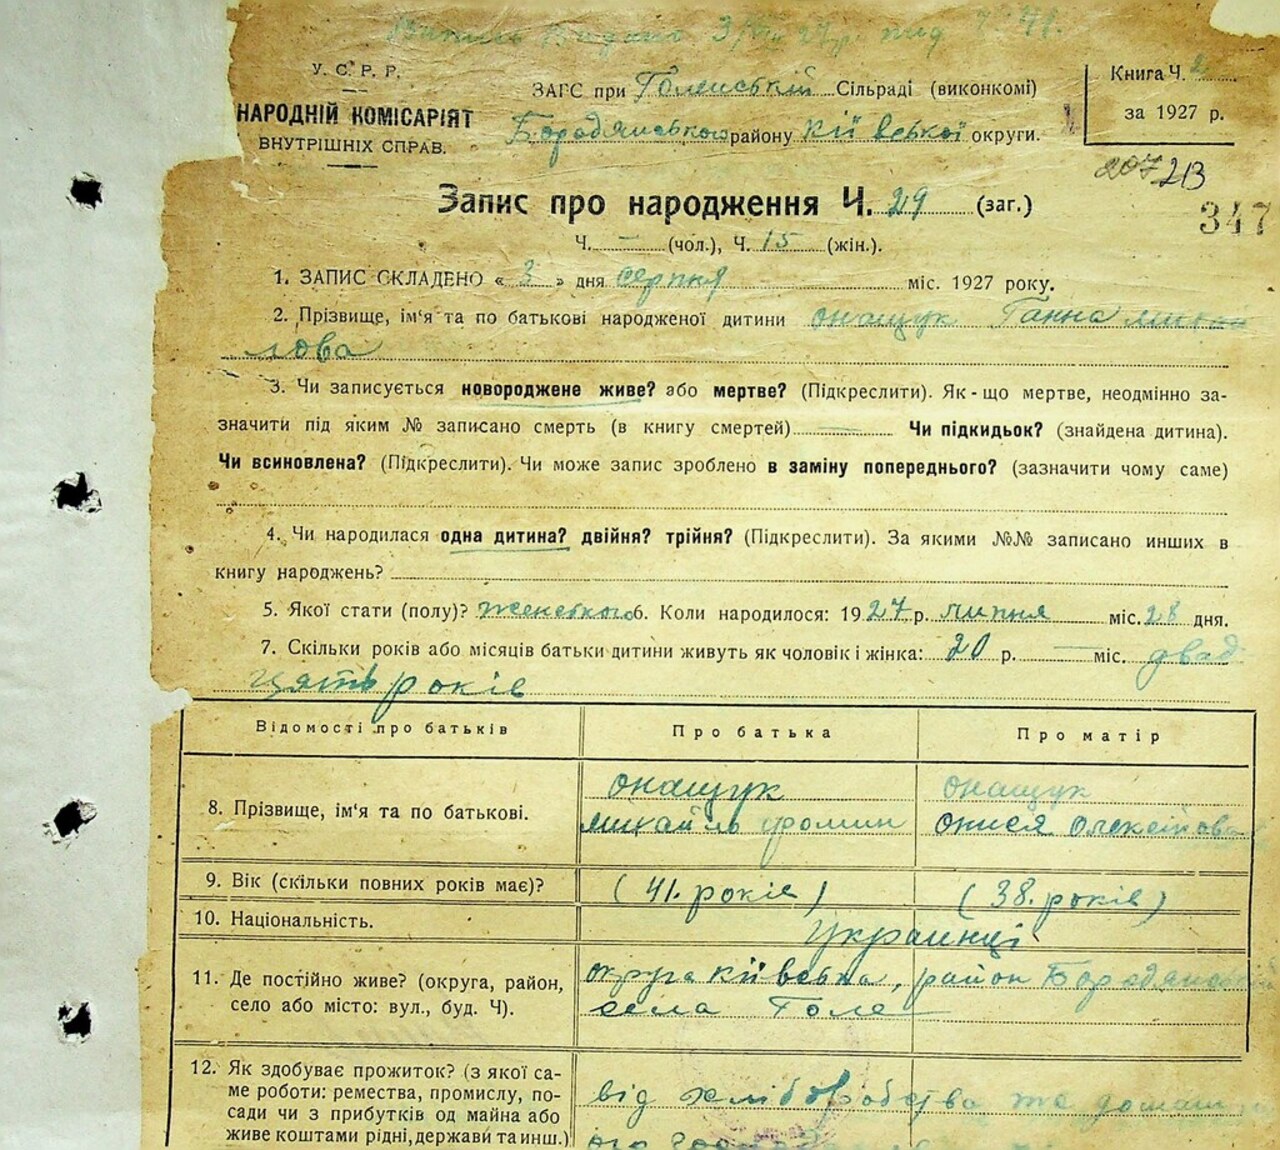 Витяг Видано 3/VIII 27 р. під Ч. 41.
У. С. Р. Р.
НАРОДНІЙ КОМІСАРІЯТ
ВНУТРІШНІХ СПРАВ.
ЗАГС при Голенській Сільраді (виконкомі)
Бородянського району Кіївської округи.
Книга Ч. 2
за 1927 р.
207 213
347
Запис про народження Ч. 29 (заг.)
Ч. — (чол.), Ч. 15 (жін.).
1. ЗАПИС СКЛАДЕНО « 3 » дня серпня міс. 1927 року.
2. Прізвище, ім'я та по батькові народженої дитини Онащук Ганна Михай
лова
3. Чи записується новороджене живе? або мертве? (Підкреслити). Як-що мертве, неодмінно за-
значити під яким № записано смерть (в книгу смертей) — Чи підкидьок? (знайдена дитина).
Чи всиновлена? (Підкреслити). Чи може запис зроблено в заміну попереднього? (зазначити чому саме)
4. Чи народилася одна дитина? двійня? трійня? (Підкреслити). За якими №№ записано инших в
книгу народжень?
5. Якої стати (полу)? женського 6. Коли народилося: 1927 р. липня міс. 28 дня.
7. Скільки років або місяців батьки дитини живуть як чоловік і жінка: 20 р. — міс. двад
цять років
Відомості про батьків Про батька Про матір
8. Прізвище, ім'я та по батькові. Онащук Михайль Фомин Онащук Онися Олексійова
9. Вік (скільки повних років має)? (41. років) (38. років)
10. Національність. Украинці
11. Де постійно живе? (округа, район, округа Кіївська, район Бородянський
село або місто: вул., буд. Ч). села Голе
12. Як здобуває прожиток? (з якої са-
ме роботи: ремества, промислу, по-
сади чи з прибутків од майна або
живе коштами рідні, держави та инш.)
від хліборобства